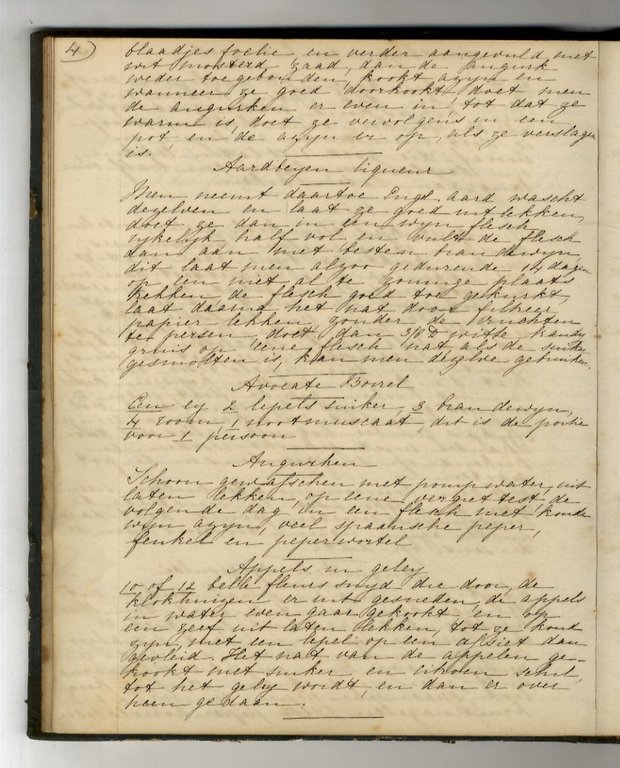 4
blaadjes foelie, en verder aangevuld met
wit mosterd zaad, dan de augurk
weder toegebonden, kookt azyn en
wanneer ze goed doorkookt doet men
de augurken er even in, tot dat ze
warm is, doet ze vervolgens in een
pot en de azyn er op, als ze verslagen
is.
Aardbeyen liqueur
Men neemt daartoe Engl. aard wascht
dezelven en laat ze goed uitlekken,
doet ze dan in een wyn flesch
rykelyk half vol en vult de flesch
dan aan met besten brandewyn,
dit laat men alzoo gedurende 14 dagen
op een niet al te zonnige plaats
trekken, de flesch goed toe gekurkt,
laat daarna het nat door filtreer
papier lekken zonder de vruchten
te persen, doet dan witte kandy
gruis op eene flesch nat als de suiker
gesmolten is, kan men dezelve gebruiken.
Avocate Borrel
Een ey 2 lepels suiker, 3 brandewyn,
4 room, 1 nootmuscaat, dit is de portie
voor 1 persoon
Augurken
Schoon gewafschen met pompwater, uit
laten lekken, op eene vergiettest de
volgende dag in een flesch met koude
wyn azyn, veel spaansche peper,
fenkel en peperwortel
Appels in geley
10 of 12 belle fleurs snyd die door, de
klokhuizen er uit gesneden, de appels
in water even gaar gekookt en op
een zeef uit laten lekken, tot ze koud
zyn, met een lepel op een afsiet dan
geleid. Het nat van de appelen ge-
kookt met suiker en citroen schil,
tot het geley wordt, en dan er over
heen gedaan.